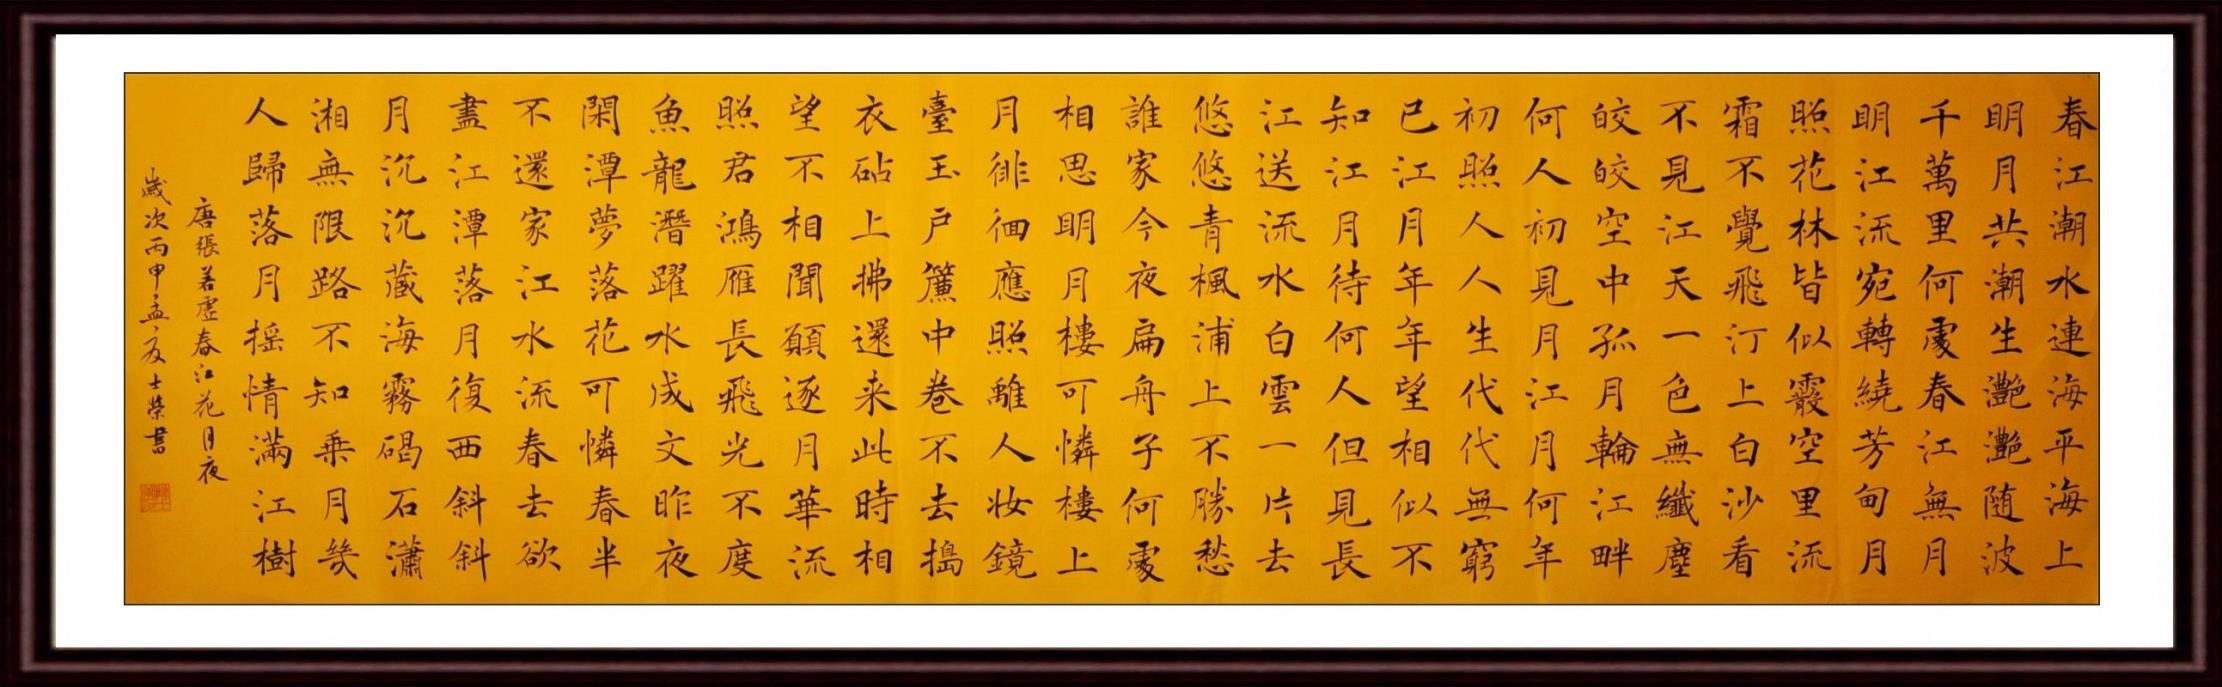 春江潮水連海平海上
明月共潮生灔灔随波
千萬里何處春江無月
明江流宛轉繞芳甸月
照花林皆似霰空里流
霜不覺飛汀上白沙看
不見江天一色無纖塵
皎皎空中孤月輪江畔
何人初見月江月何年
初照人人生代代無窮
已江月年年望相似不
知江月待何人但見長
江送流水白雲一片去
悠悠青楓浦上不勝愁
誰家今夜扁舟子何處
相思明月樓可憐樓上
月徘徊應照離人妝鏡
臺玉戶簾中卷不去搗
衣砧上拂還来此時相
望不相聞願逐月華流
照君鴻雁長飛光不度
魚龍潛躍水成文昨夜
閑潭夢落花可憐春半
不還家江水流春去欲
盡江潭落月復西斜斜
月沉沉藏海霧碣石瀟
湘無限路不知乘月幾
人歸落月摇情滿江樹
唐張若虛春江花月夜
歲次丙申孟夏士榮書